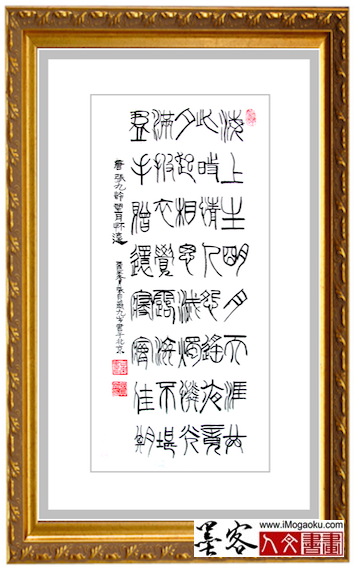 海上生明月天涯共
此時情人怨遙夜竟
夕起相思滅燭憐光
滿披衣覺露滋不堪
盈手贈還寢寢佳期
唐 張九齡望月怀遠
北京
www.iMogaoku.com
墨客 人文書畫